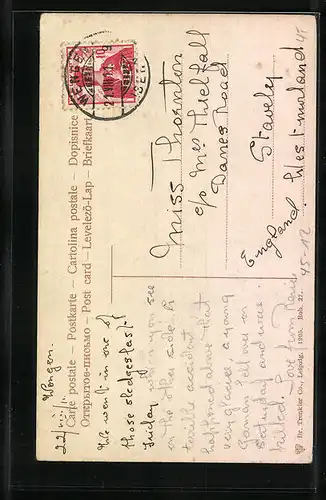 Carte postale – Postkarte – Cartolina postale – Dopisnice
Открытое письмо – Post card – Levelező-Lap – Briefkaart
WENGEN
Wengen.
We went in one of
those sledges last
Friday when you see
on the other side. A
terrible accident
happened above that
very glacier, a young
German fell over on
Saturday and was
killed. Love from
Miss Thornton
c/o Mrs Thelfall
Danes Road
Staveley
Westmorland
England
45-12
Dr. Trenkler Co., Leipzig. 1905. Hob. 27.